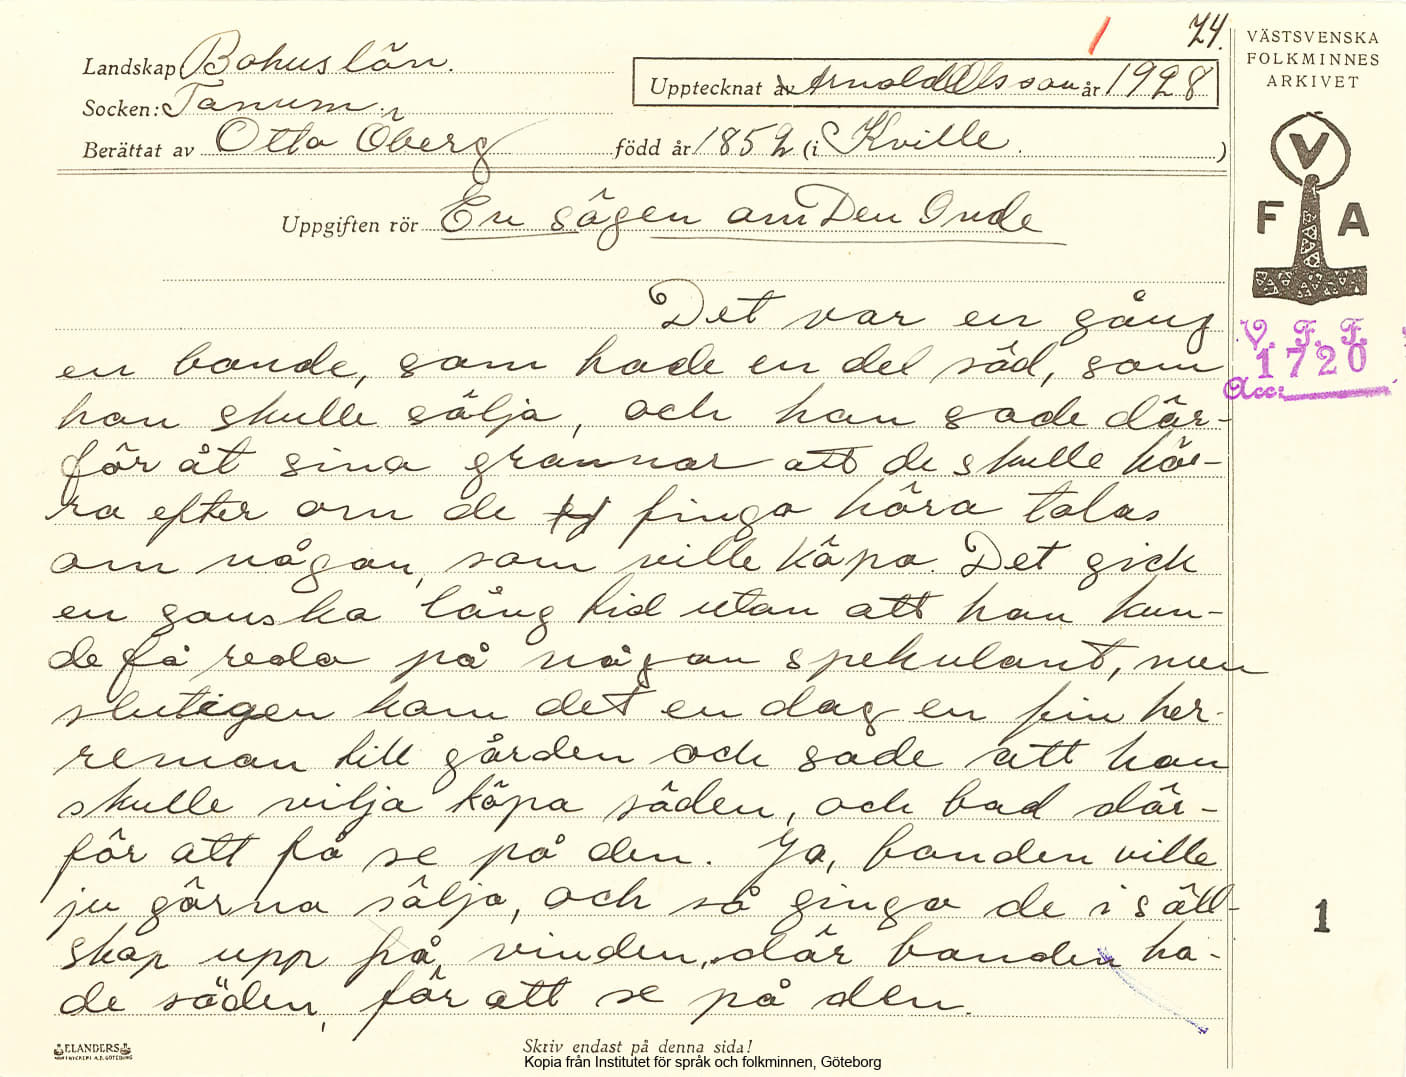 1 74.
Landskap Bohuslän.
Upptecknat av Arnold Olsson år 1928
Socken: Tanum.
Berättat av Otto Öberg född år 1852 (i Kville. )
Uppgiften rör En sägen om Den Onde
Det var en gång
en bonde, som hade en del säd, som
han skulle sälja, och han sade där-
för åt sina grannar att de skulle hö-
ra efter om de fingo höra talas
om någon, som ville köpa. Det gick
en ganska lång tid utan att han kun-
de få reda på någon spekulant, men
slutigen kom det en dag en fin her-
reman till gården och sade att han
skulle vilja köpa säden, och bad där-
för att få se på den. Ja, bonden ville
ju gärna sälja, och så gingo de i säll-
skap upp på vinden, där bonden ha-
de säden, för att se på den.
ELANDERS
BOKTRYCKERI A.B. GÖTEBORG
Skriv endast på denna sida!
Kopia från Institutet för språk och folkminnen, Göteborg
VÄSTSVENSKA
FOLKMINNES
ARKIVET
V
F A
V. F. F.
1720
Acc:
1